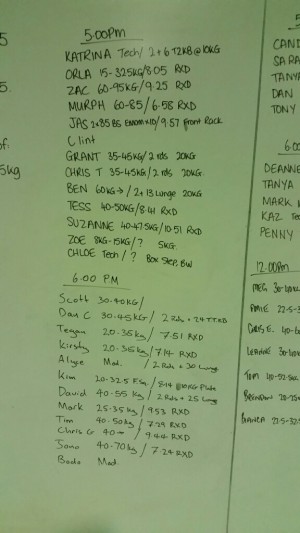 5:00pm
KATRINA Tech/ 2+6 T2KB @10KG
ORLA 15-32.5KG/8:05 RXD
ZAC 60-95KG/9:25 RXD
MURPH 60-85/6:58 RXD
JAS 2x85 BS EMOM x10/9:57 Front Rack
Clint
GRANT 35-45kg/2 rds 20KG
CHRIS T 35-45KG/2 rds 20KG
BEN 60KG→/2+13 Lunge 20KG
TESS 40-50KG/8:41 RXD
SUZANNE 40-47.5KG/10:51 RXD
ZOE 8KG-15KG/? 5KG.
CHLOE Tech/? Box Step, BW
6:00 PM
Scott 30-40KG/
Dan C 30-45KG/ 2 Rds + 24 TTRD
Tegan 20-35kg/ 7:51 RXD
Kirsty 20-35kg/7:14 RXD
Alyce Mod. /2 Rds + 30 Lunge
Kim 20-32.5 Kg/ 8:14 @10KG Plate
David 40-55 Kg/ 2 Rds + 25 Lunge
Mark 25-35 kg/ 9:53 RXD
Tim 40-50kg/ 7:29 RXD
Chris G 40→ / 9:44 RXD
Jono 40-70kg/ 7:24 RXD
Bado Mod.
5
5.
of.
5kg
CAND
SARA
TANYA
DAN
TONY
6:00
DEANNE
TANYA
MARK
KAZ Te
PENNY
12:00pm
MEG 30-40KG
AMIE 22.5-3
CHRIS E. 40-6
LEANNE 30-40K
TOM 40-52.5KG
BRENDAN 20-25
BIANCA 22.5-32.5